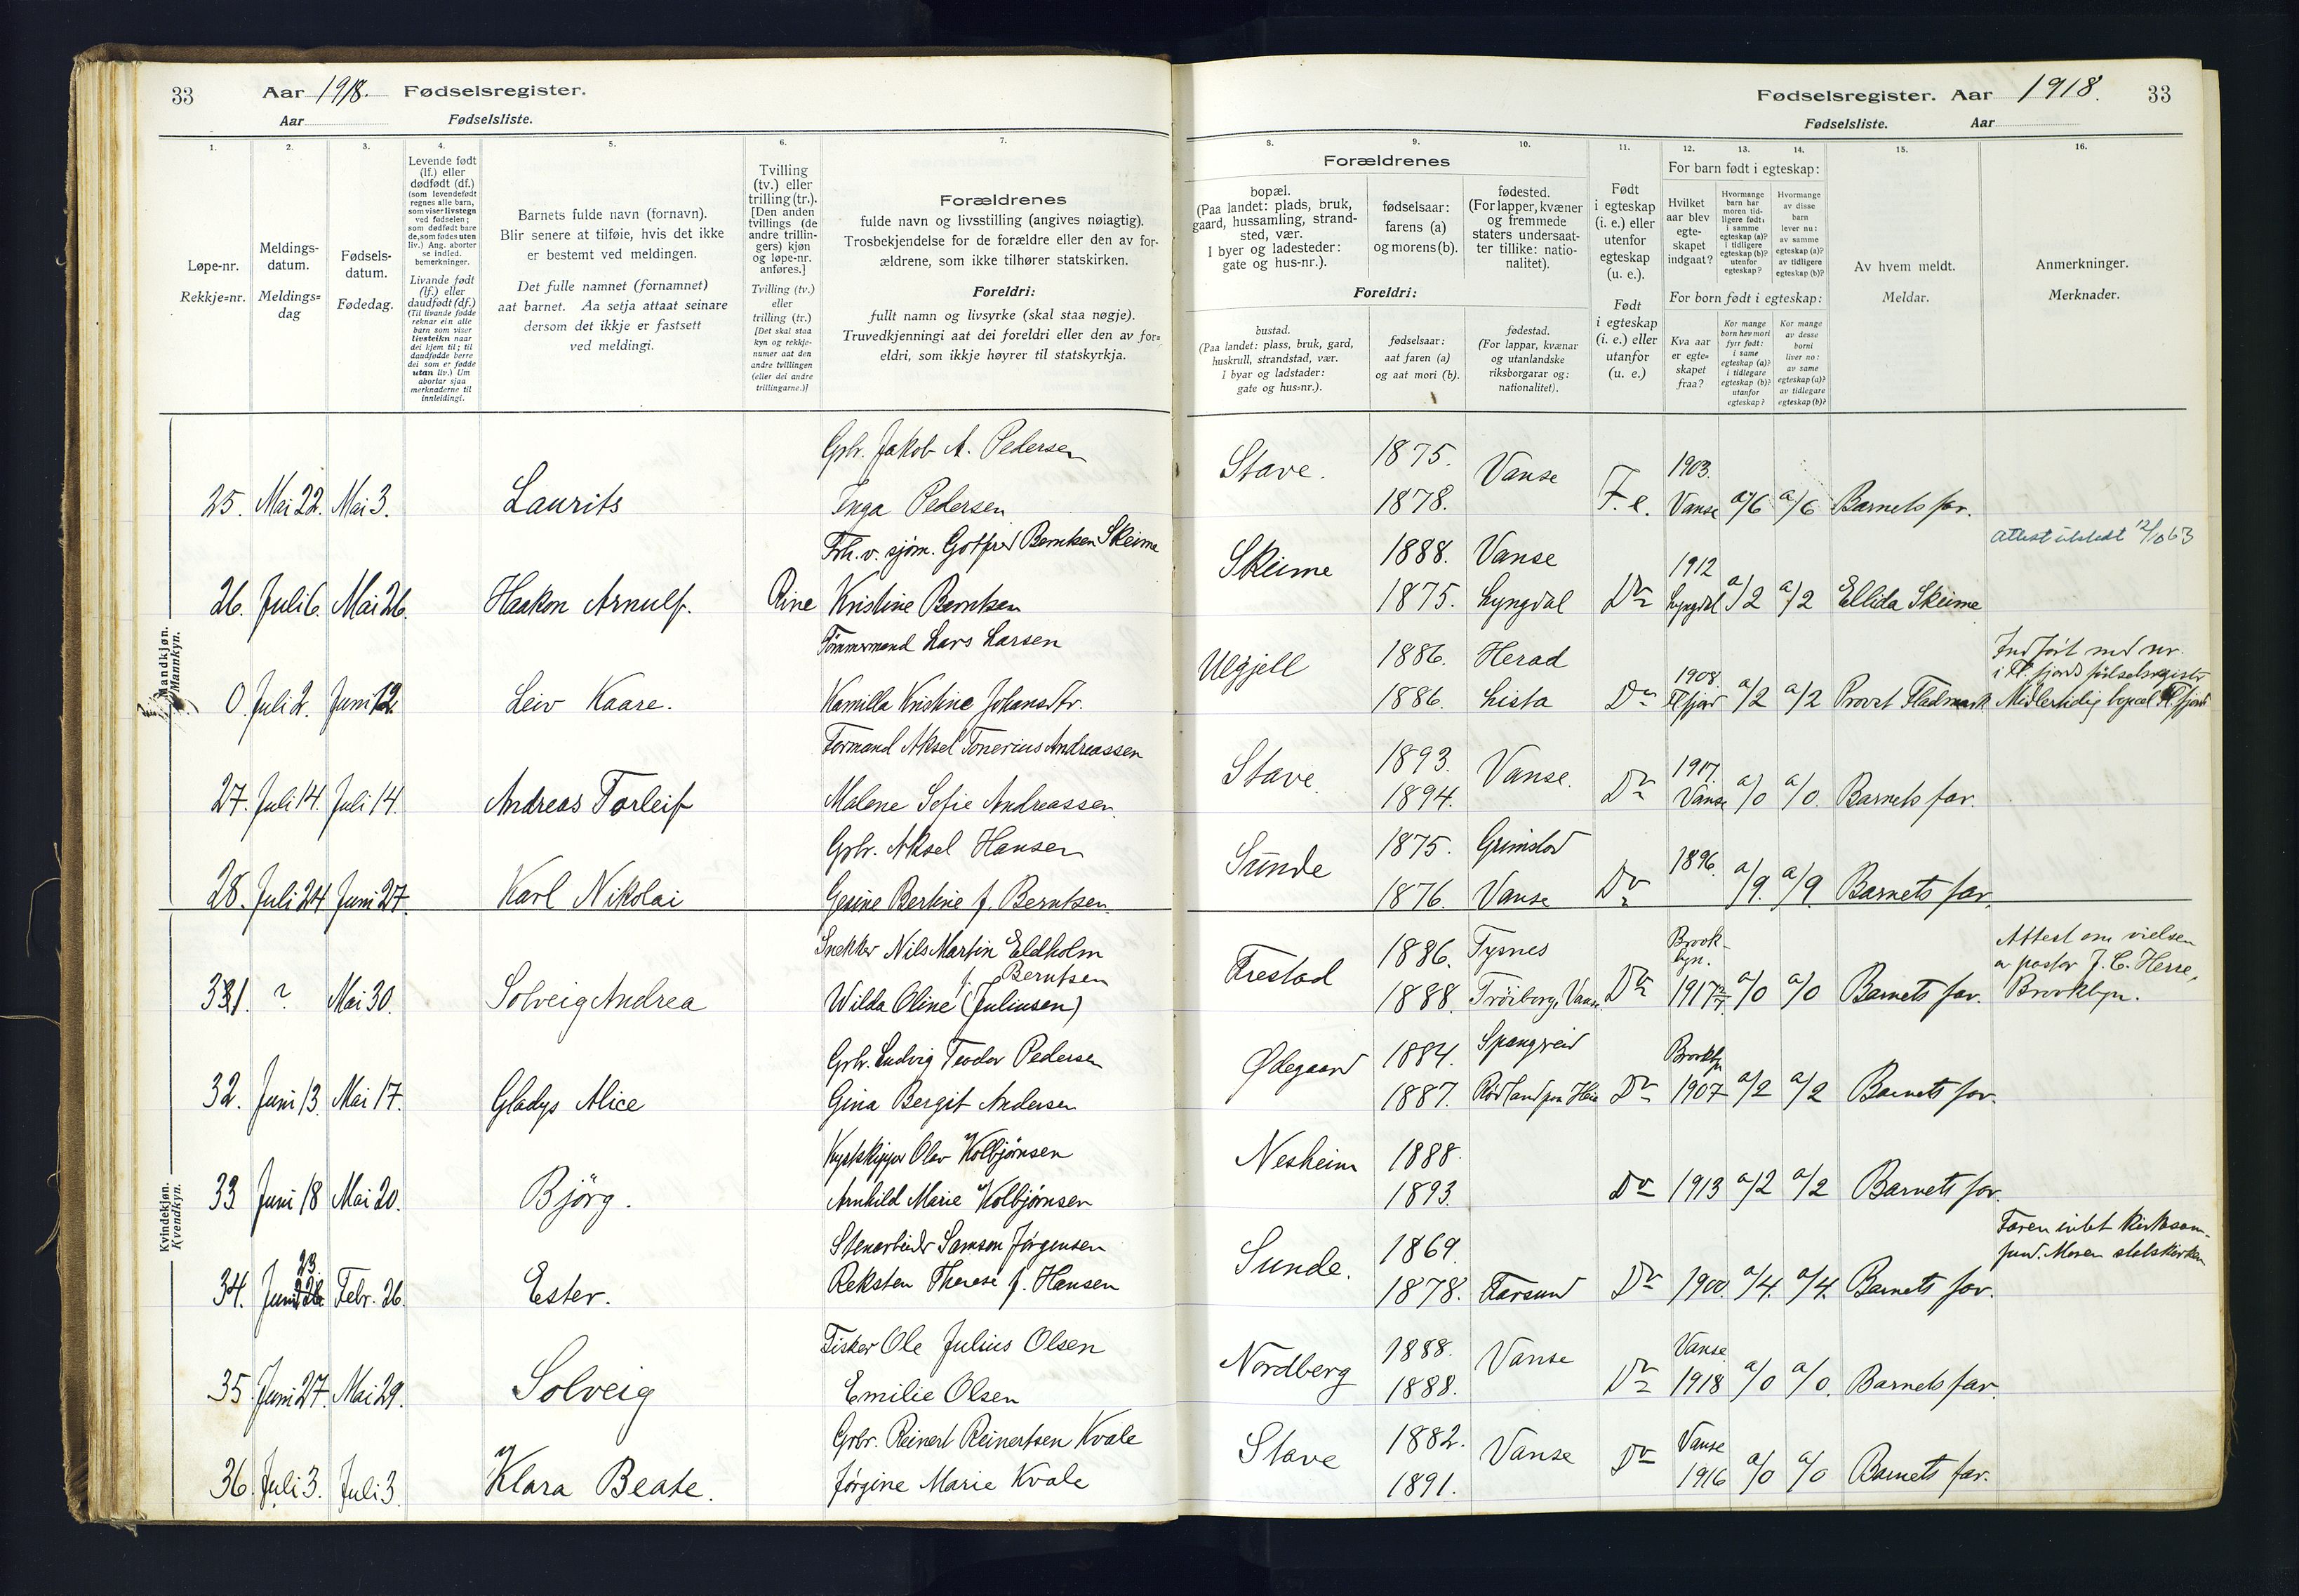 33 Aar 1918. Fødselsregister.
Aar Fødselsliste.
1. 2. 3. 4. 5. 6. 7.
Løpe-nr.
Rekkje=nr.
Meldings-
datum.
Meldings=
dag
Fødsels-
datum.
Fødedag.
Levende født
(lf.) eller
dødfødt (df.)
(som levendefødt
regnes alle barn,
som viser livstegn
ved fødselen;
som dødfødt bare
de, som fødes uten
liv.) Ang. aborter
se indled.
bemerkninger.
Livande født
(lf.) eller
daudfødt (df.)
(Til livande fødde
reknar ein alle
barn som viser
livsteikn naar
dei kjem til; til
daudfødde berre
dei som er fødde
utan liv.) Um
abortar sjaa
merknaderne til
innleidingi.
Barnets fulde navn (fornavn).
Blir senere at tilføie, hvis det ikke
er bestemt ved meldingen.
Det fulle namnet (fornamnet)
aat barnet. Aa setja attaat seinare
dersom det ikkje er fastsett
ved meldingi.
Tvilling
(tv.) eller
trilling (tr.).
[Den anden
tvillings (de
andre trillin-
gers) kjøn
og løpe-nr.
anføres.]
Tvilling (tv.)
eller
trilling (tr.)
[Det skal staa
kyn og rekkje-
numer aat den
andre tvillingen
(eller dei andre
trillingarne.)]
Forældrenes
fulde navn og livsstilling (angives nøiagtig).
Trosbekjendelse for de forældre eller den av for-
ældrene, som ikke tilhører statskirken.
Foreldri:
fullt namn og livsyrke (skal staa nøgje).
Truvedkjenningi aat dei foreldri eller den av for=
eldri, som ikkje høyrer til statskyrkja.
Mandkjøn.
Mannkyn.
Grbr. Jakob A. Pedersen
25. Mai 22. Mai 3. Laurits Inga Pedersen
Frh. v. sjøm. Gotfred Berntsen Skeime
26. Juli 6. Mai 26. Haakon Arnulf. Rine Kristine Berntsen
Tømmermand Lars Larsen
0. Juli 2. Juni 12. Leiv Kaare. Kamilla Kristine Johansdtr.
Formand Aksel Tonerius Andreassen
27. Juli 14. Juli 14. Andreas Torleif Malene Sofie Andreassen.
Grbr. Aksel Hansen
28. Juli 24 Juni 27. Karl Nikolai Gesine Bertine f. Berntsen.
Kvindekjøn.
Kvendkyn.
Snekker Nils Martin Eldholm
f. Berntsen
31 ? Mai 30. Solveig Andrea Wilda Oline (Juliusen)
Grbr. Ludvig Teodor Pedersen
32. Juni 13. Mai 17. Gladys Alice Gina Bergit Andersen
Kystskipper Olav Kolbjørnsen
33 Juni 18 Mai 20. Björg. Arnhild Marie Kolbjørnsen
Stenarbeider Samson Jørgensen
23.
34. Juni Febr. 26. Ester. Reksten Therese f. Hansen
Fisker Ole Julius Olsen
35 Juni 27. Mai 29. Solveig Emilie Olsen
Grbr. Reinert Reinertsen Kvale
36. Juli 3. Juli 3. Klara Beate. Jørgine Marie Kvale
Fødselsregister. Aar 1918. 33
Fødselsliste. Aar
8. 9. 10. 11. 12. 13. 14. 15. 16.
Forældrenes
bopæl.
(Paa landet: plads, bruk,
gaard, hussamling, strand-
sted, vær.
I byer og ladesteder:
gate og hus-nr.).
fødselsaar:
farens (a)
og morens (b).
fødested.
(For lapper, kvæner
og fremmede
staters undersaat-
ter tillike: natio-
nalitet).
Foreldri:
bustad.
(Paa landet: plass, bruk, gard,
huskrull, strandstad, vær.
I byar og ladstader:
gate og hus=nr.).
fødselsaar:
aat faren (a)
og aat mori (b).
fødestad.
(For lappar, kvænar
og utanlandske
riksborgarar og:
nationalitet).
Født
i egteskap
(i. e.) eller
utenfor
egteskap
(u. e.).
Født
i egteskap
(i. e.) eller
utanfor
(u. e.)
For barn født i egteskap:
Hvilket
aar blev
egte-
skapet
indgaat?
Hvormange
barn har
moren tid-
ligere født:
i samme
egteskap (a)?
i tidligere
egteskap (b)?
utenfor
egteskap?
Hvormange
av disse
barn
lever nu:
av samme
egteskap (a)?
av tidligere
egteskap (b)?
For born født i egteskap:
Kva aar
er egte=
skapet
fraa?
Kor mange
born hev mori
fyrr født:
i same
egteskap (a)?
i tidlegare
egteskap (b)?
utanfor
egteskap?
Kor mange
av desse
borni
liver no:
av same
egteskap (a)?
av tidlegare
egteskap (b)?
Av hvem meldt.
Meldar.
Anmerkninger.
Merknader.
Stave. 1875. Vanse 1903.
1878. F. e. Vanse a/6 a/6 Barnets far.
Attest utstedt 12/10 63
Skeime 1888. Vanse 1912
1875. Lyngdal Do Lyngdal a/2 a/2 Ellida Skeime
Ulgjell 1886. Herad 1908. Indført med nr.
i Fl. fjords fødselsregister
1886. Lista Do Fl fjord a/2 a/2 Provst Fladmark Midlertidig bopæl Fl. fjord
Stave. 1893. Vanse. 1917.
1894. Do Vanse a/0 a/0. Barnets far.
Sunde 1875. Grimstad 1896.
1876. Vanse Do a/9. a/9. Barnets far.
Frestad 1886. Tysnes Brook-
lyn. Attest om vielsen
av pastor J. C. Herre,
1888. Trøiborg, Vanse Do 1917 a/0 a/0 Barnets far. Brooklyn.
Ødegaard 1884. Spangreid Brooklyn
1887. Do 1907 a/2 a/2 Barnets far.
Nesheim 1888.
1893. Do 1913 a/2 a/2 Barnets far.
Sunde. 1869. Faren intet kirkesam-
fund. Moren statskirken
1878. Farsund Do 1900. a/4. a/4. Barnets far.
Nordberg 1888. Vanse Vanse
1888. Do 1918 a/0 a/0. Barnets far.
Stave 1882. Vanse Do Vanse
1891. 1916 a/0 a/0 Barnets far.